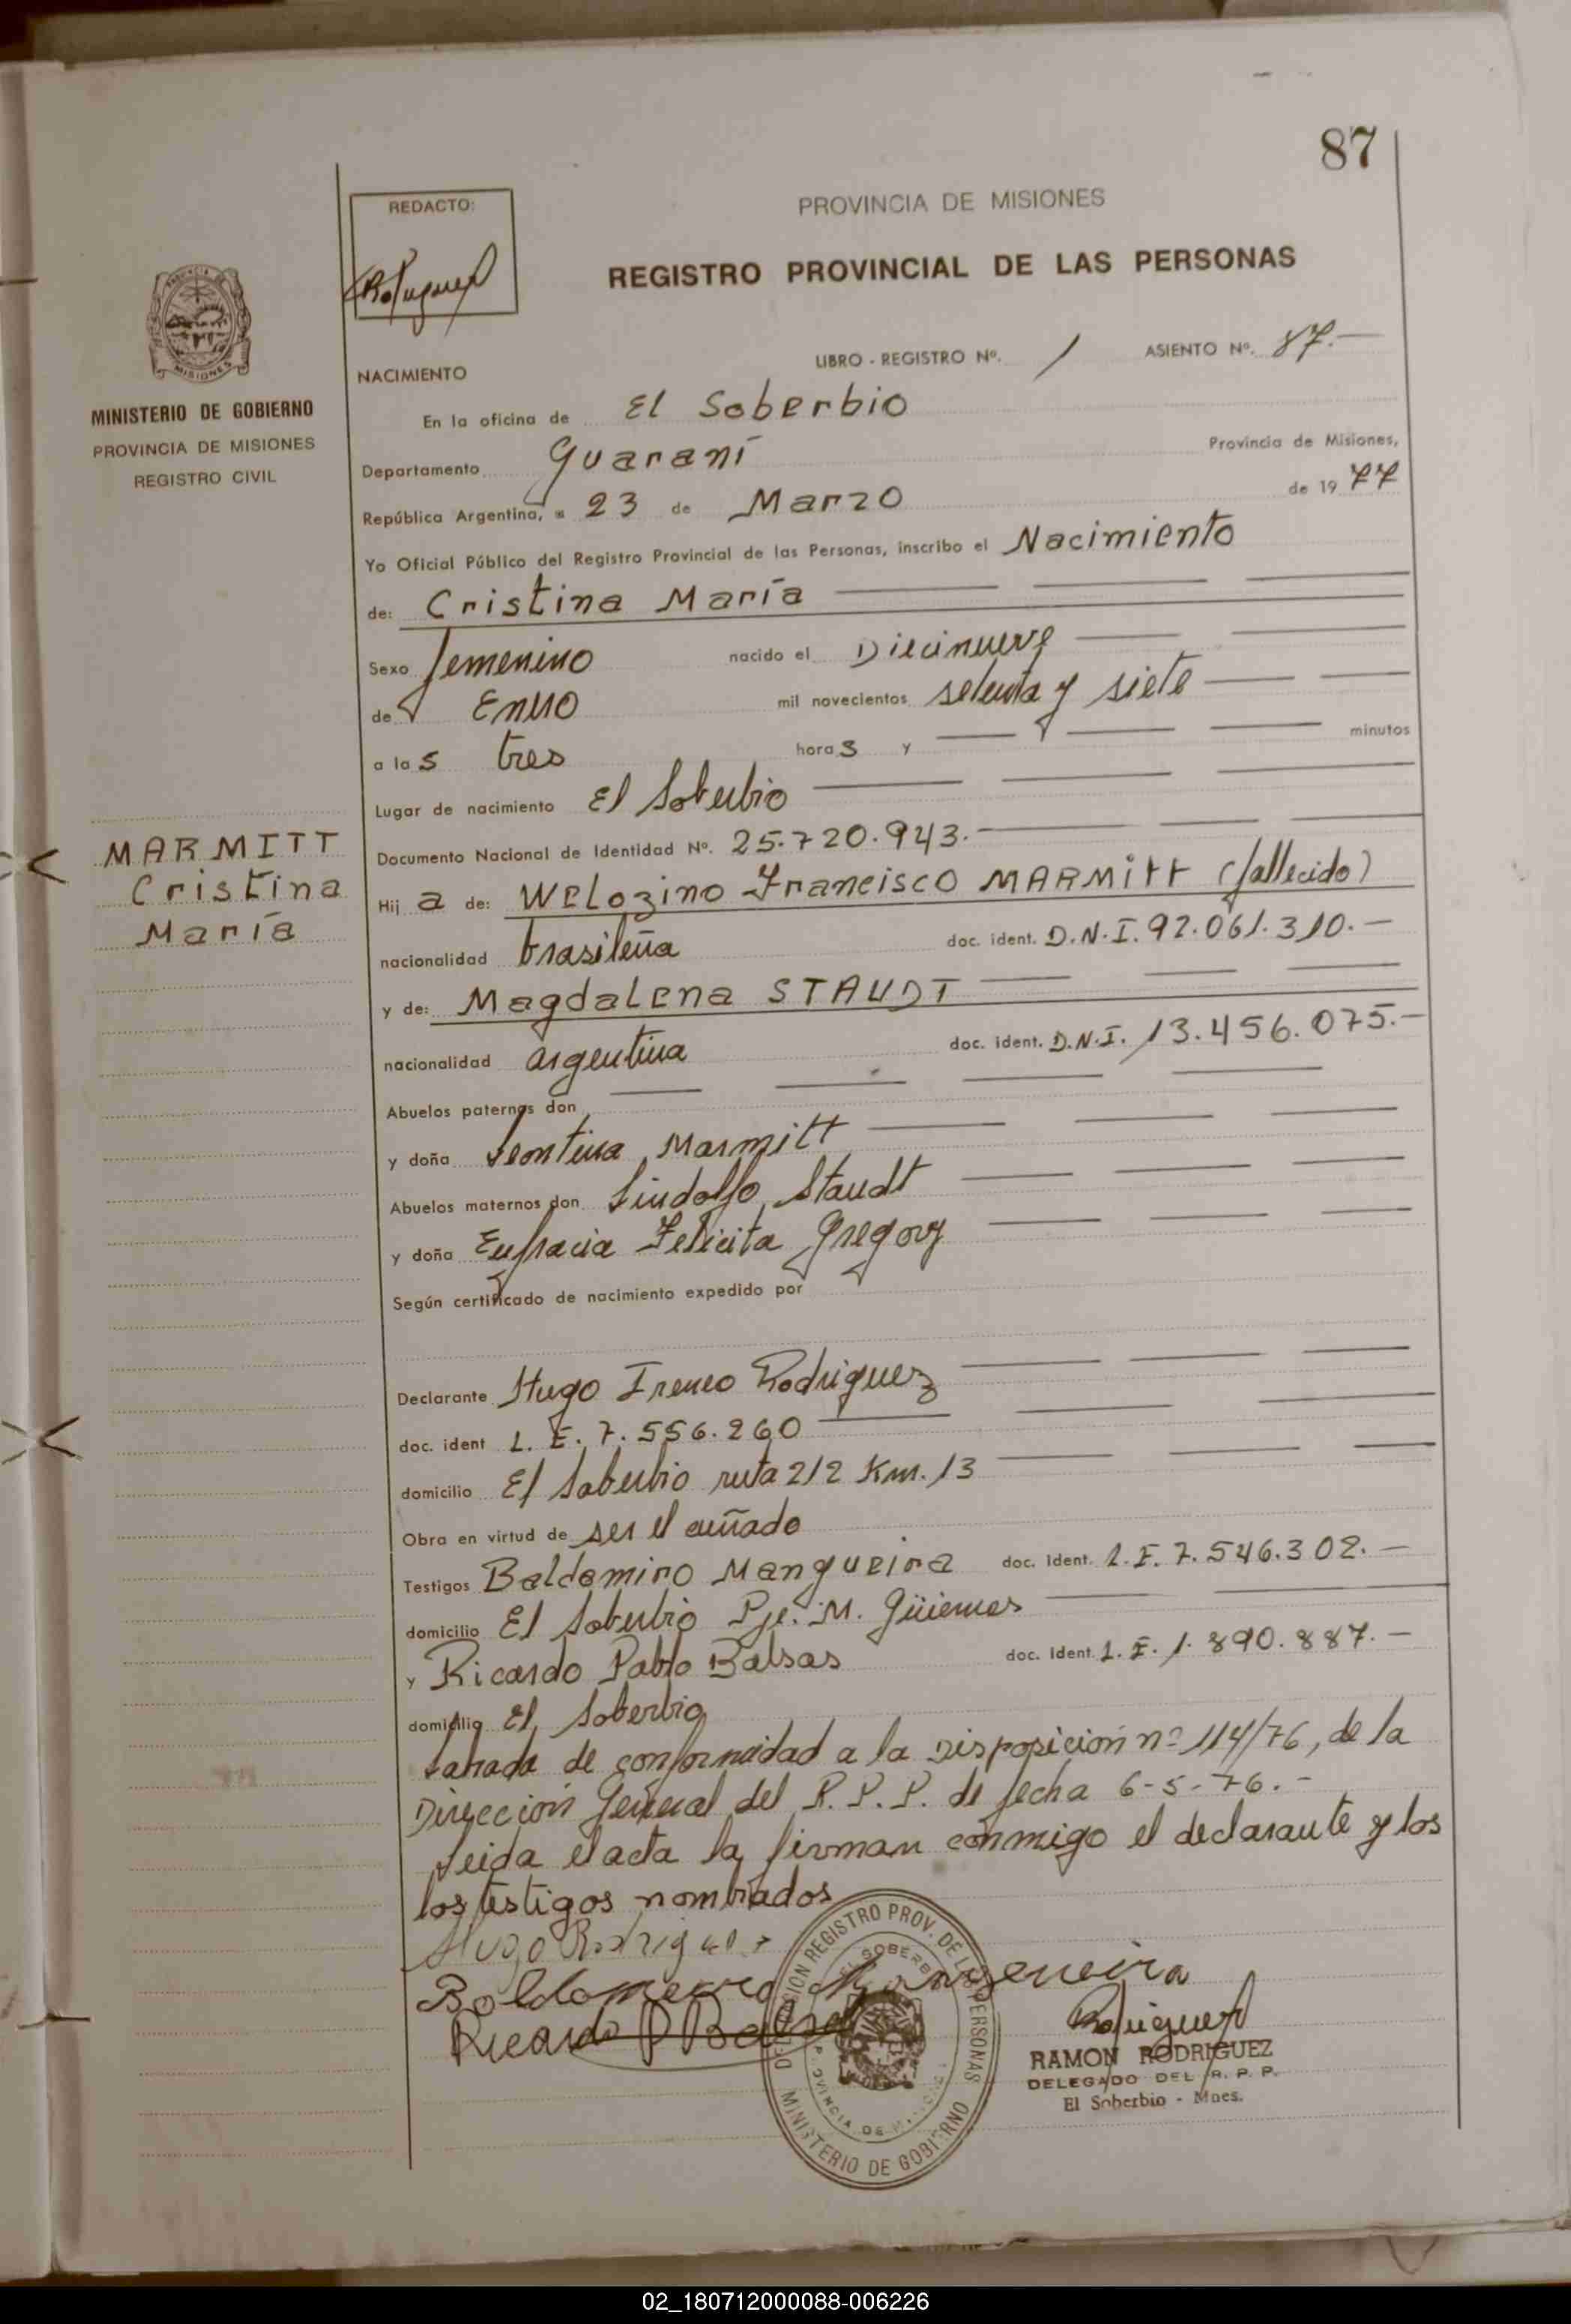 87
REDACTO:
PROVINCIA DE MISIONES
REGISTRO PROVINCIAL DE LAS PERSONAS
MINISTERIO DE GOBIERNO
PROVINCIA DE MISIONES
REGISTRO CIVIL
NACIMIENTO LIBRO - REGISTRO Nº. 1 ASIENTO Nº. 87.-
En la oficina de El Soberbio
Departamento Guaraní Provincia de Misiones,
República Argentina, a 23 de Marzo de 1977
Yo Oficial Público del Registro Provincial de las Personas, inscribo el Nacimiento
de: Cristina María
Sexo femenino nacido el Diecinueve
de Enero mil novecientos setenta y siete
a las tres horas y minutos
Lugar de nacimiento El Soberbio
Documento Nacional de Identidad Nº. 25.720.943.-
MARMITT
Cristina
María
Hija de: Welozino Francisco MARMITT (fallecido)
nacionalidad brasileña doc. ident. D.N.I. 92.061.310.-
y de: Magdalena STAUDT
nacionalidad argentina doc. ident. D.N.I. 13.456.075.-
Abuelos paternos don
y doña Leontina Marmitt
Abuelos maternos don Lindolfo Staudt
y doña Eufracia Felicita Gregory
Según certificado de nacimiento expedido por
Declarante Hugo Ireneo Rodriguez
doc. ident L.E. 7.556.260
domicilio El Soberbio ruta 212 Km. 13
Obra en virtud de ser el cuñado
Testigos Baldomiro Mangueira doc. Ident. L.E. 7.546.302.-
domicilio El Soberbio Pje. M. Güiemes
y Ricardo Pablo Balsas doc. Ident. L.E. 1.890.887.-
domicilio El Soberbio
Labrada de conformidad a la Disposición nº 114/76, de la
Dirección General del R.P.P. de fecha 6-5-76.-
Leida el acta la firman conmigo el declarante y los
los testigos nombrados
Hugo Rodriguez
Ricardo P Balsas
DELEGACION REGISTRO PROV. DE LAS PERSONAS
EL SOBERBIO
PROVINCIA DE MISIONES
MINISTERIO DE GOBIERNO
RAMON RODRIGUEZ
DELEGADO DEL R. P. P.
El Soberbio - Mnes.
02_180712000088-006226